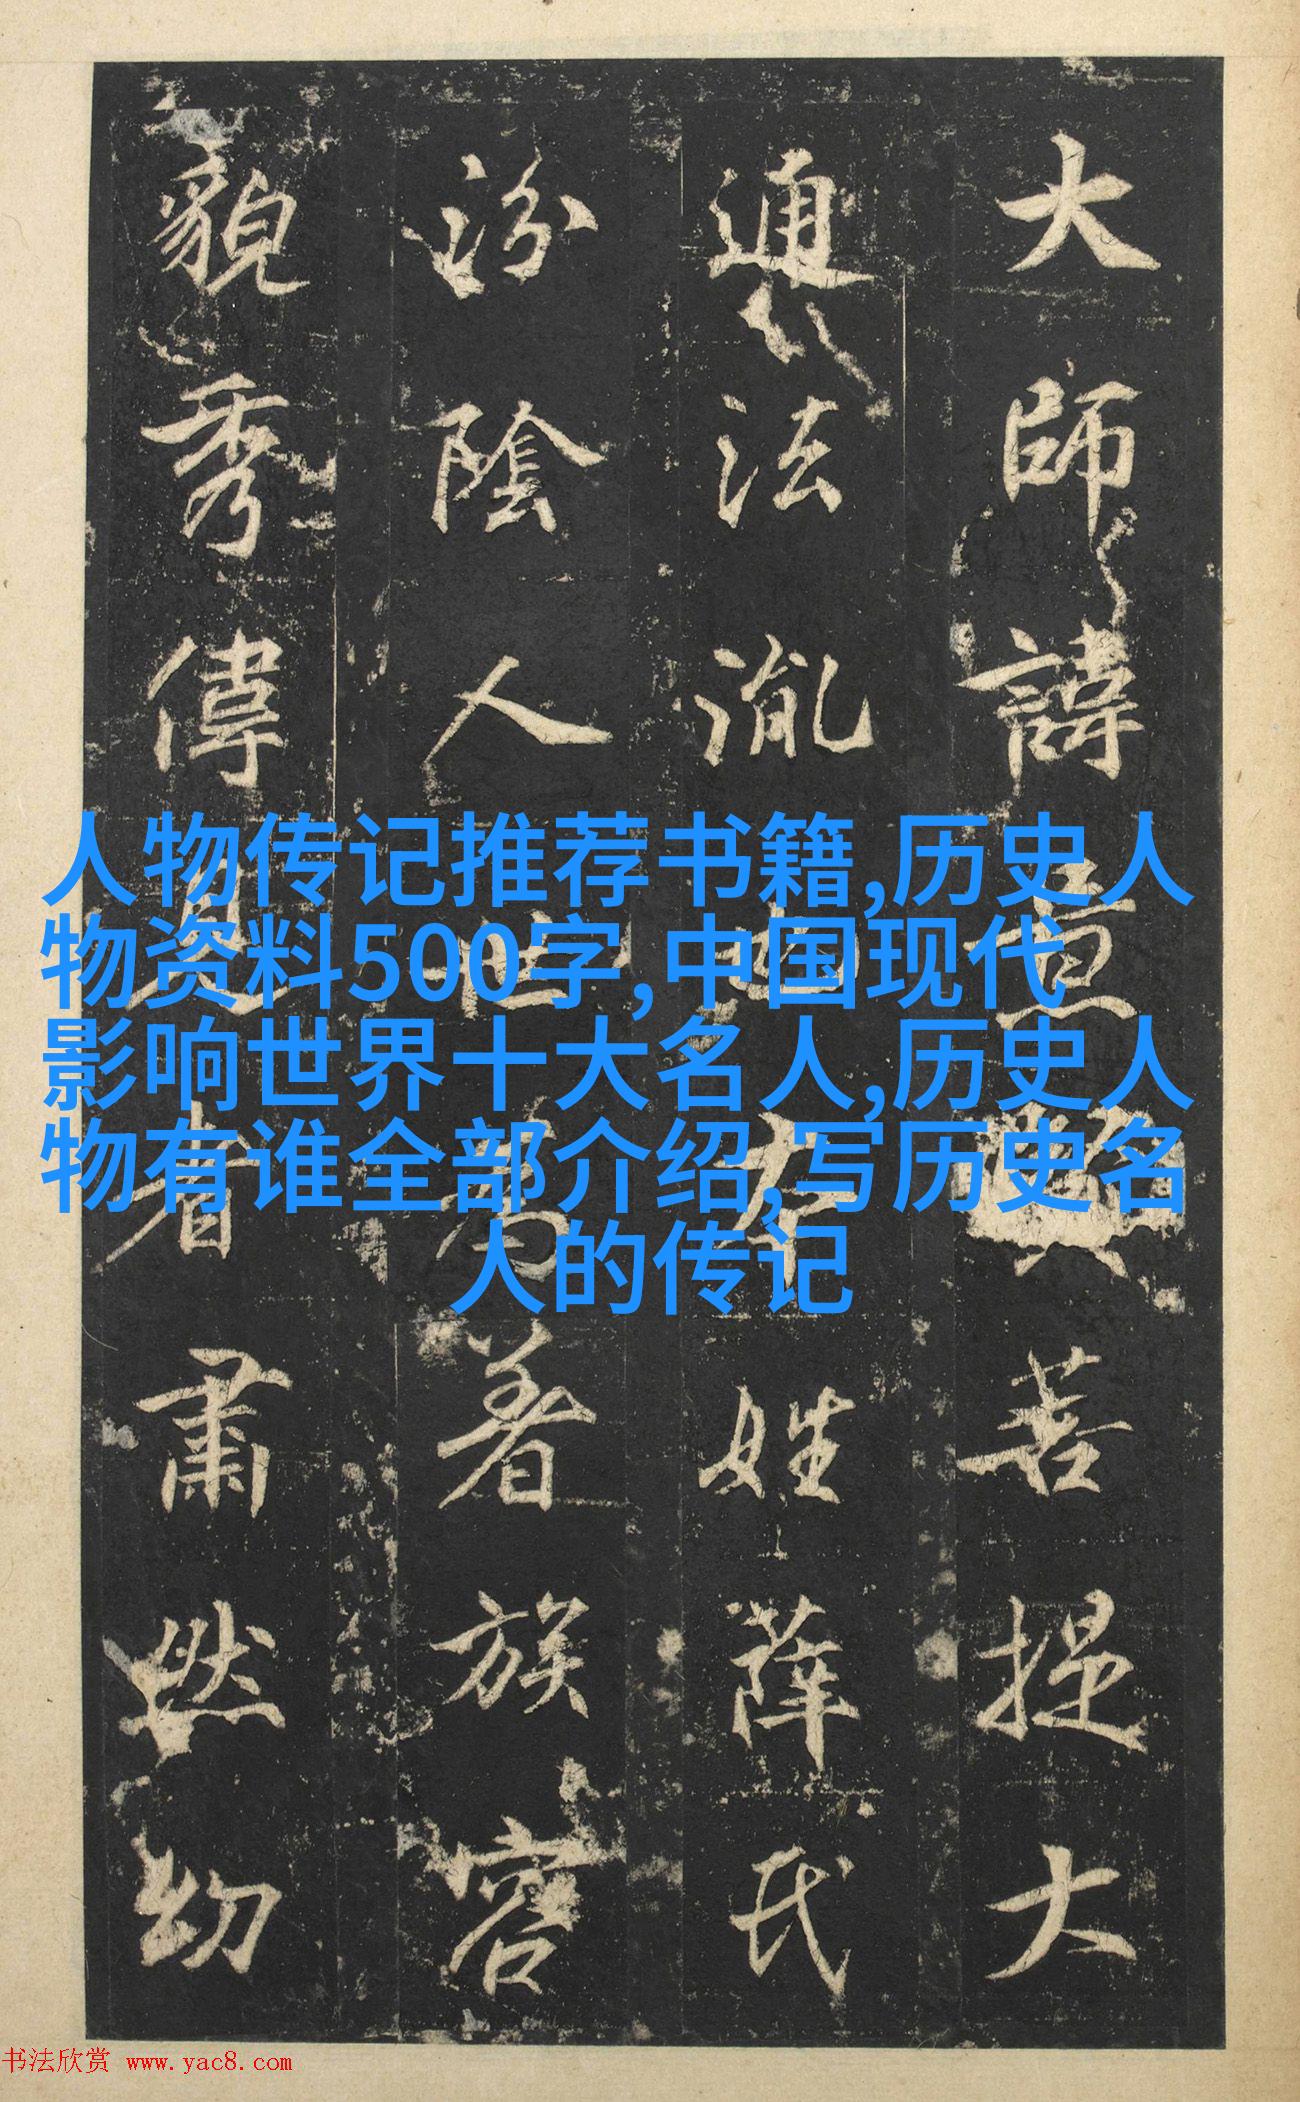 大師諱菩提大
通法胤也本姓薛氏
汾陰人世為著族容
貌秀偉見者肅然幼
人物传记推荐书籍,历史人
物资料500字,中国现代
影响世界十大名人,历史人
物有谁全部介绍,写历史名
人的传记
书法欣赏 www.yac8.com